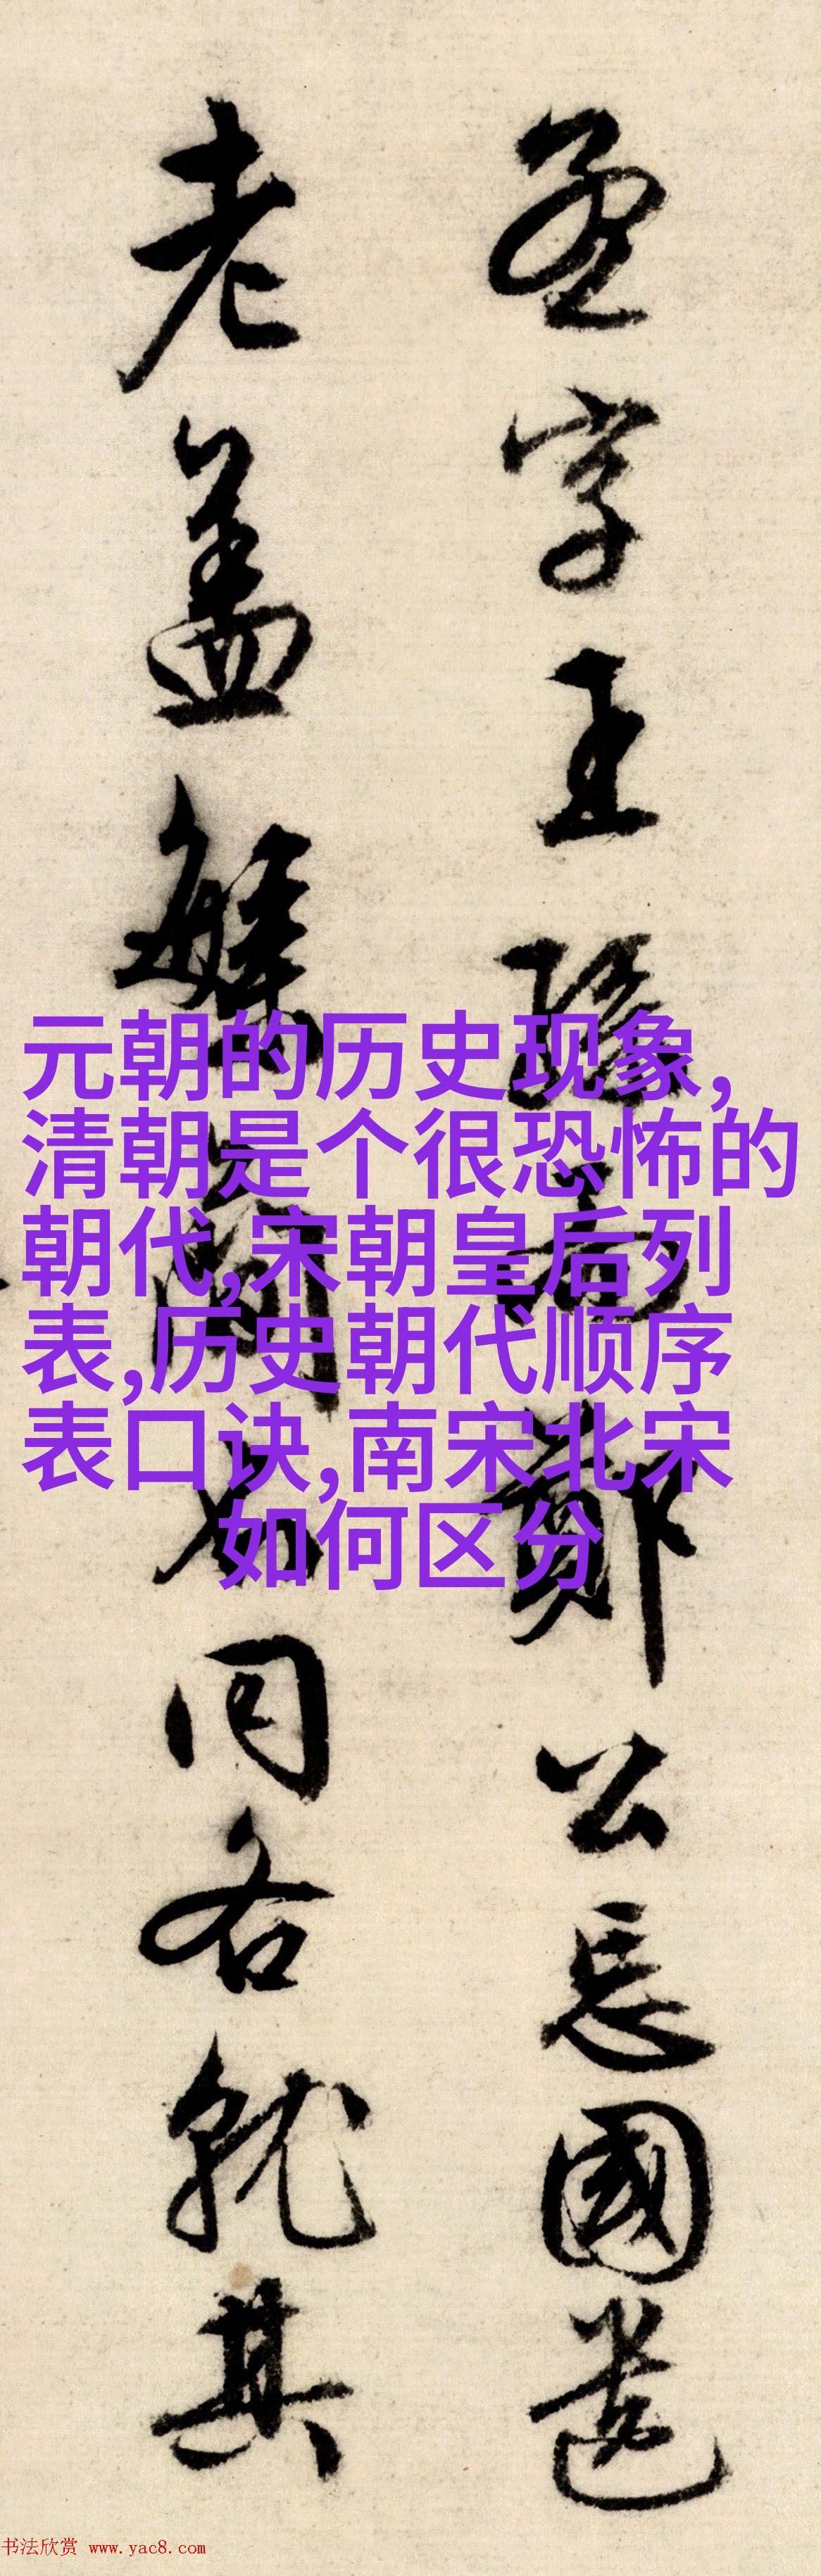 元朝的历史现象,
清朝是个很恐怖的
朝代,宋朝皇后列
表,历史朝代顺序
表口诀,南宋北宋
如何区分
字王
鄭公忘國遺
老蓋
同各就其
书法欣赏 www.yac8.com